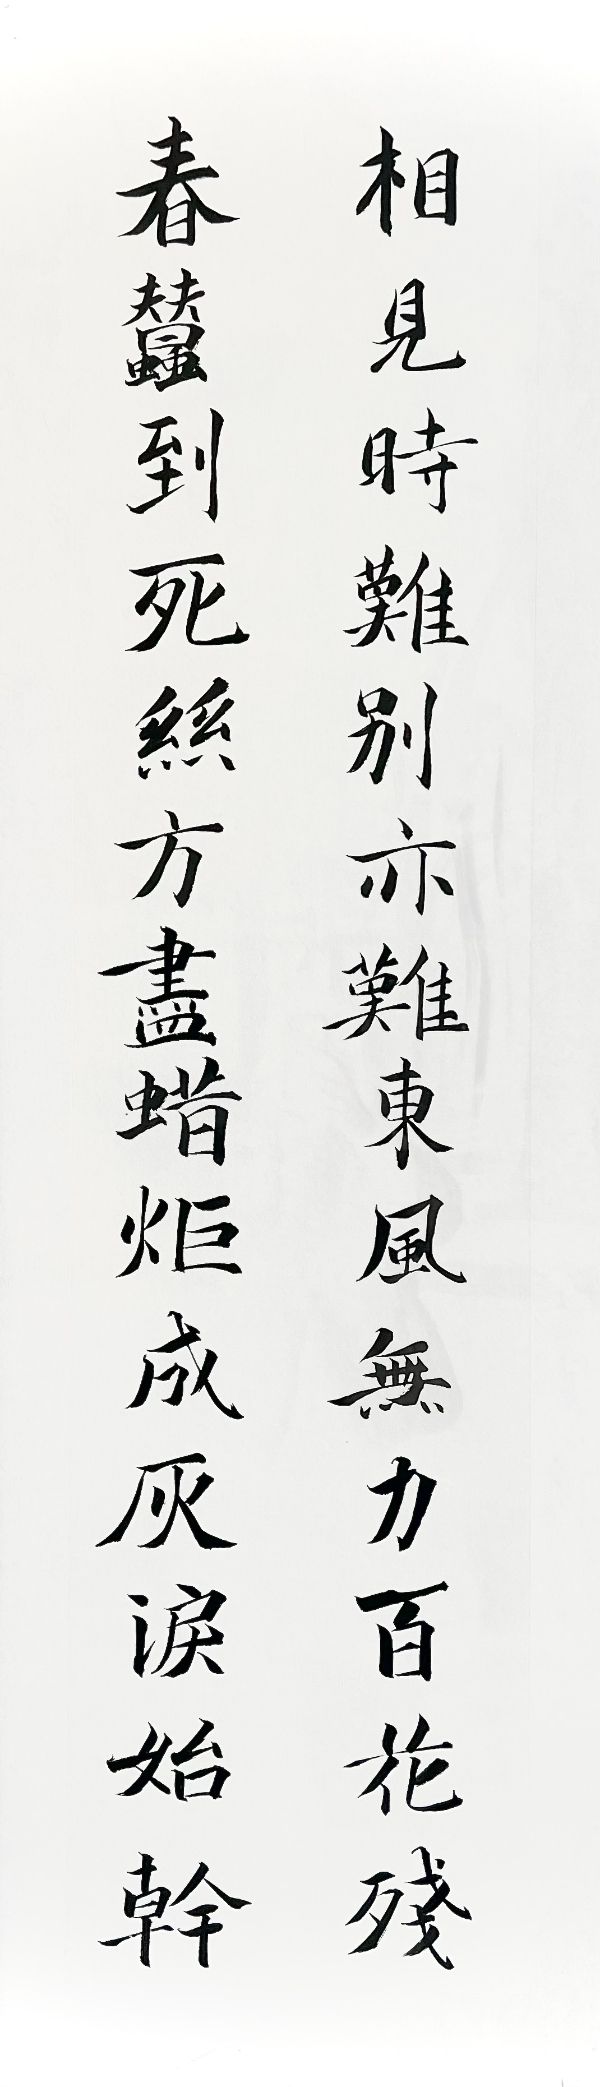 相見時難別亦難東風無力百花殘
春蠶到死絲方盡蜡炬成灰淚始幹